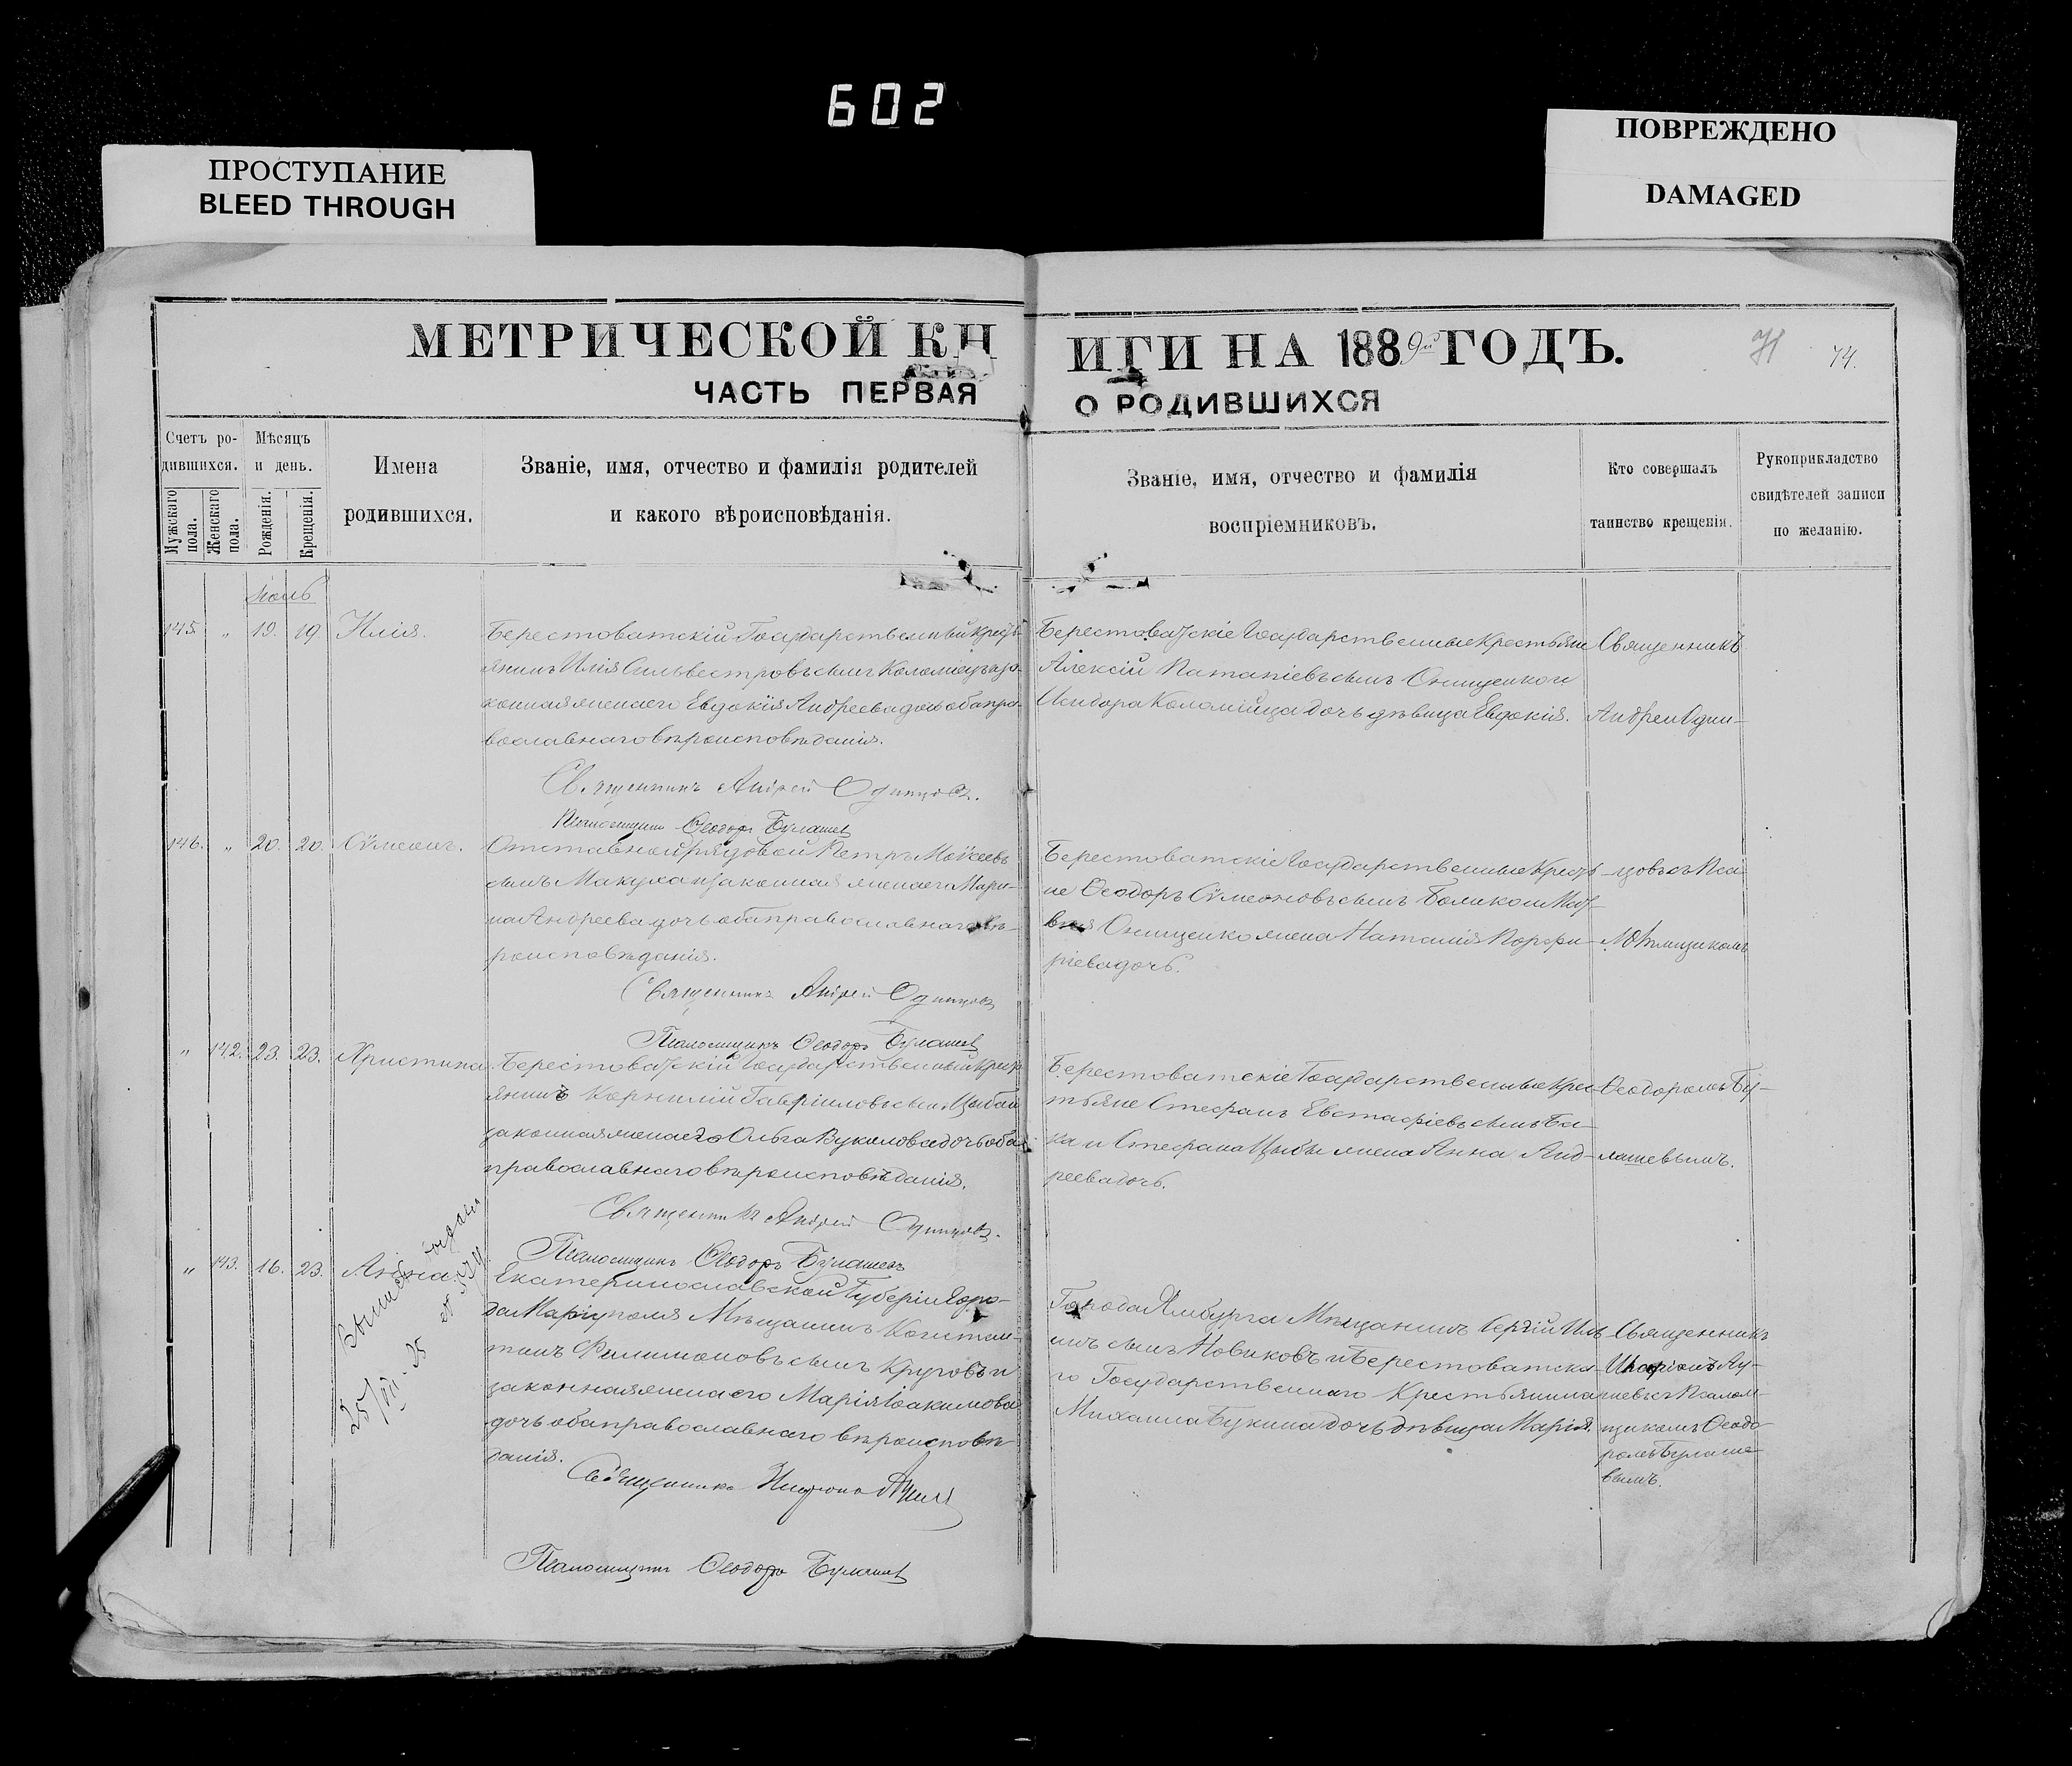 602
ПРОСТУПАНИЕ
BLEED THROUGH
ПОВРЕЖДЕНО
DAMAGED
МЕТРИЧЕСКОЙ КНИГИ НА 1889й ГОДЪ.
71
74.
ЧАСТЬ ПЕРВАЯ О РОДИВШИХСЯ
Счетъ ро-
дившихся.
Мужскаго
пола.
Женскаго
пола.
Мѣсяцъ
и день.
Рожденія.
Крещенія.
Имена
родившихся.
Званіе, имя, отчество и фамилія родителей
и какого вѣроисповѣданія.
Званіе, имя, отчество и фамилія
воспріемниковъ.
Кто совершалъ
таинство крещенія.
Рукоприкладство
свидѣтелей записи
по желанію.
145. " 19. 19. Илія.
Берестоватскій Государственный Кресть-
янинъ Илія Сильвестровъ сынъ Коломіецъ и за-
конная жена его Евдокія Андреева дочь оба пра-
вославнаго вѣроисповѣданія.
Священникъ Андрей Одинцовъ.
Псаломщикъ Ѳеодоръ Булашев
Берестоватскіе Государственные Крестьяни
Алексій Патапіевъ сынъ Онищенко и
Исидора Коломійца дочь дѣвица Евдокія.
Священникъ
Андрей Один-
146. " 20. 20. Сѵмеонъ.
Отставной рядовой Петръ Моѵсеевъ
сынъ Макуха и законная жена его Мари-
на Андреева дочь оба православнаго вѣ-
роисповѣданія.
Священникъ Андрей Одинцовъ
Псаломщикъ Ѳеодоръ Булашев
Берестоватскіе Государственные Кресть-
не Ѳеодоръ Сѵмеоновъ сынъ
Онищенко жена Наталія Порфи-
ріева дочь.
цовъ съ Пса
ломщикомъ
" 142. 23. 23. Христина
Берестоватскій Государственный Крест
янинъ Корнилій Гавріиловъ сынъ
законная жена его Ольга Вукилова дочь оба
православнаго вѣроисповѣданія.
Священникъ Андрей Одинцовъ.
Псаломщикъ Ѳеодоръ Булашевъ
Берестоватскіе Государственные Крес-
тьяне Стефанъ Евстафіевъ сынъ Ба-
ка и Стефана Цыбы жена Анна Анд-
реева дочь.
Ѳеодоромъ Бу-
лашевымъ.
" 143. 16. 23. Анна.
Екатеринославской Губерніи Горо-
да Маріуполя Мѣщанинъ Констан-
тинъ Филимоновъ сынъ Круговъ и
законная жена его Марія Іоакимова
дочь оба православнаго вѣроисповѣ-
данія.
Священникъ
Псаломщикъ Ѳеодоръ Булашев
Города Ямбурга Мѣщанинъ Сергій
сынъ Новиковъ и Берестоватска-
го Государственнаго Крестьянина
Михаила Букина дочь дѣвица Марія.
Священникъ
съ Псалом-
щикомъ Ѳеодо-
ромъ Булаше-
вымъ.